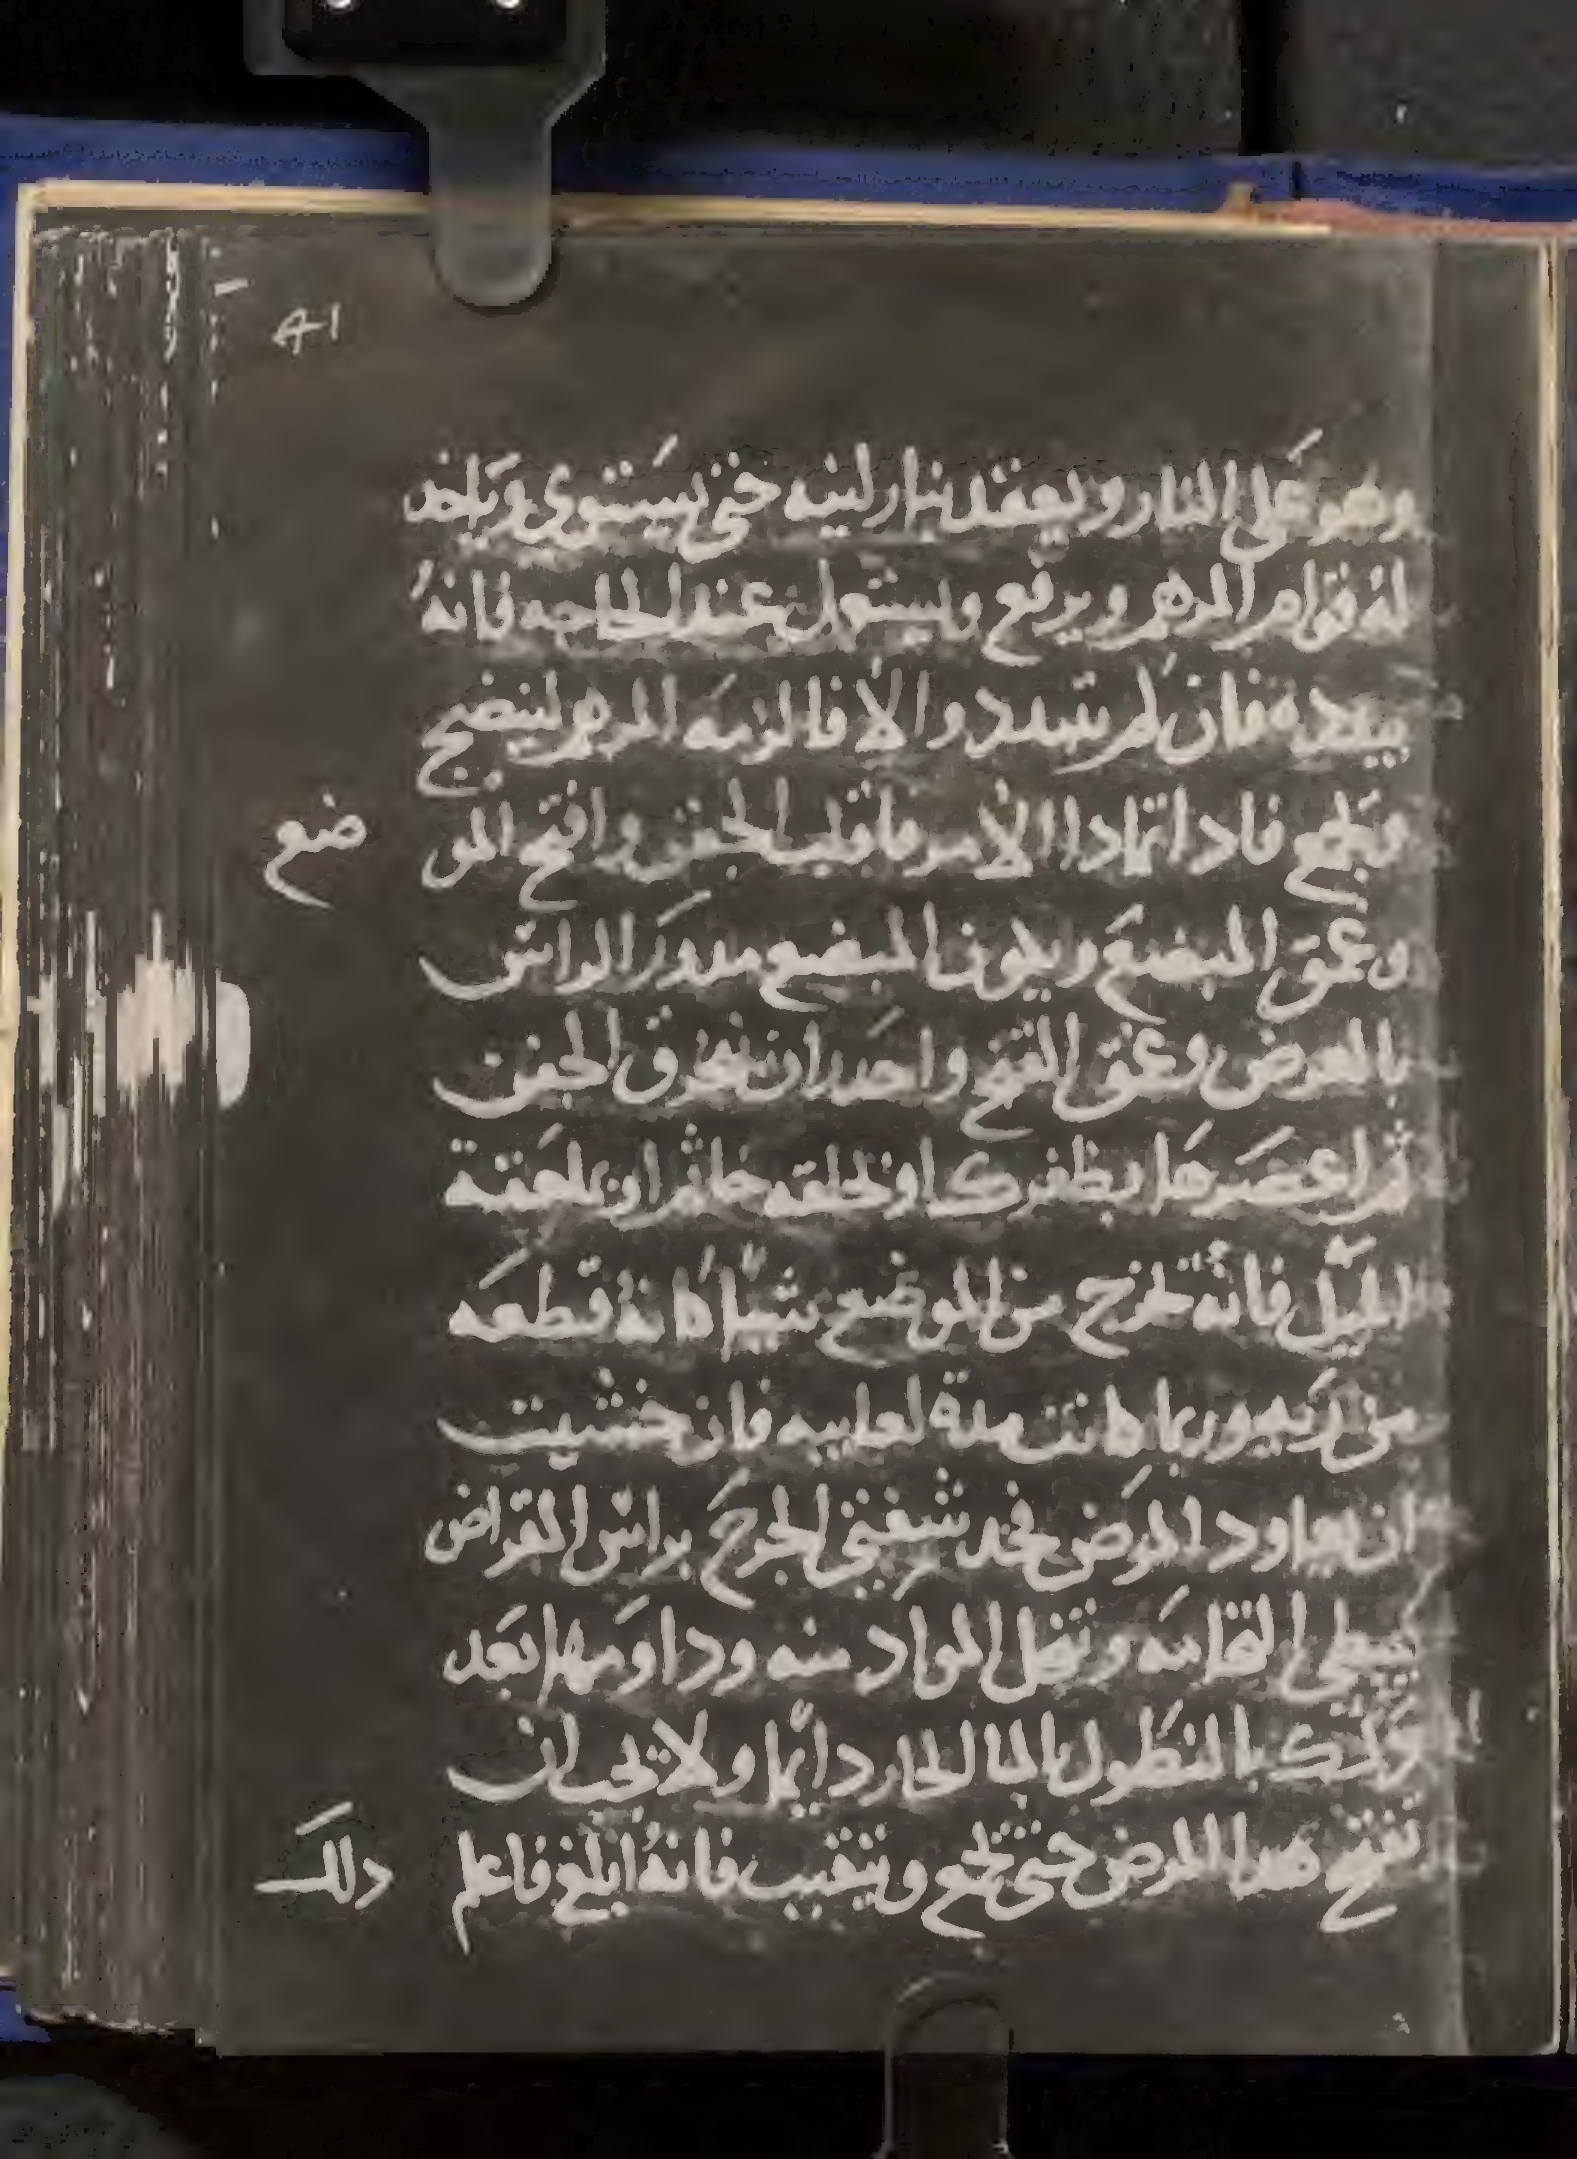 41
وهو على النار ويعقد بنار لينه حتى يستوي وياخد
له قوام المرهم ويرفع ويستعمل عند الحاجه فانه
يبدده فان لم يتبدد والا فالزمه المرهم لينضج
ويجمع فادا تمادا الامر فاقلب الجفن وافتح المو
ضع
وعمق المبضع ويكون المبضع مدور الراس
بالعرض وعمق الفتح واحدر ان تخرق الجفن
ثم اعصرها بظفرك او بحلقه خاتم او بملعقة
الميل فانه يخرج من الموضع شيا كانه قطعه
من ريه وربما كانت مدة لعابيه فان خشيت
ان يعاود المرض فخد شفتي الجرح براس القراض
يبطي التحامه وتنحل المواد منه وداومها بعد
دلك بالنطول بالما الحار دايما ولا يجب ان
تفتح هدا المرض حتى يجمع ويتقيب فانه ابلغ فاعلم
دلك